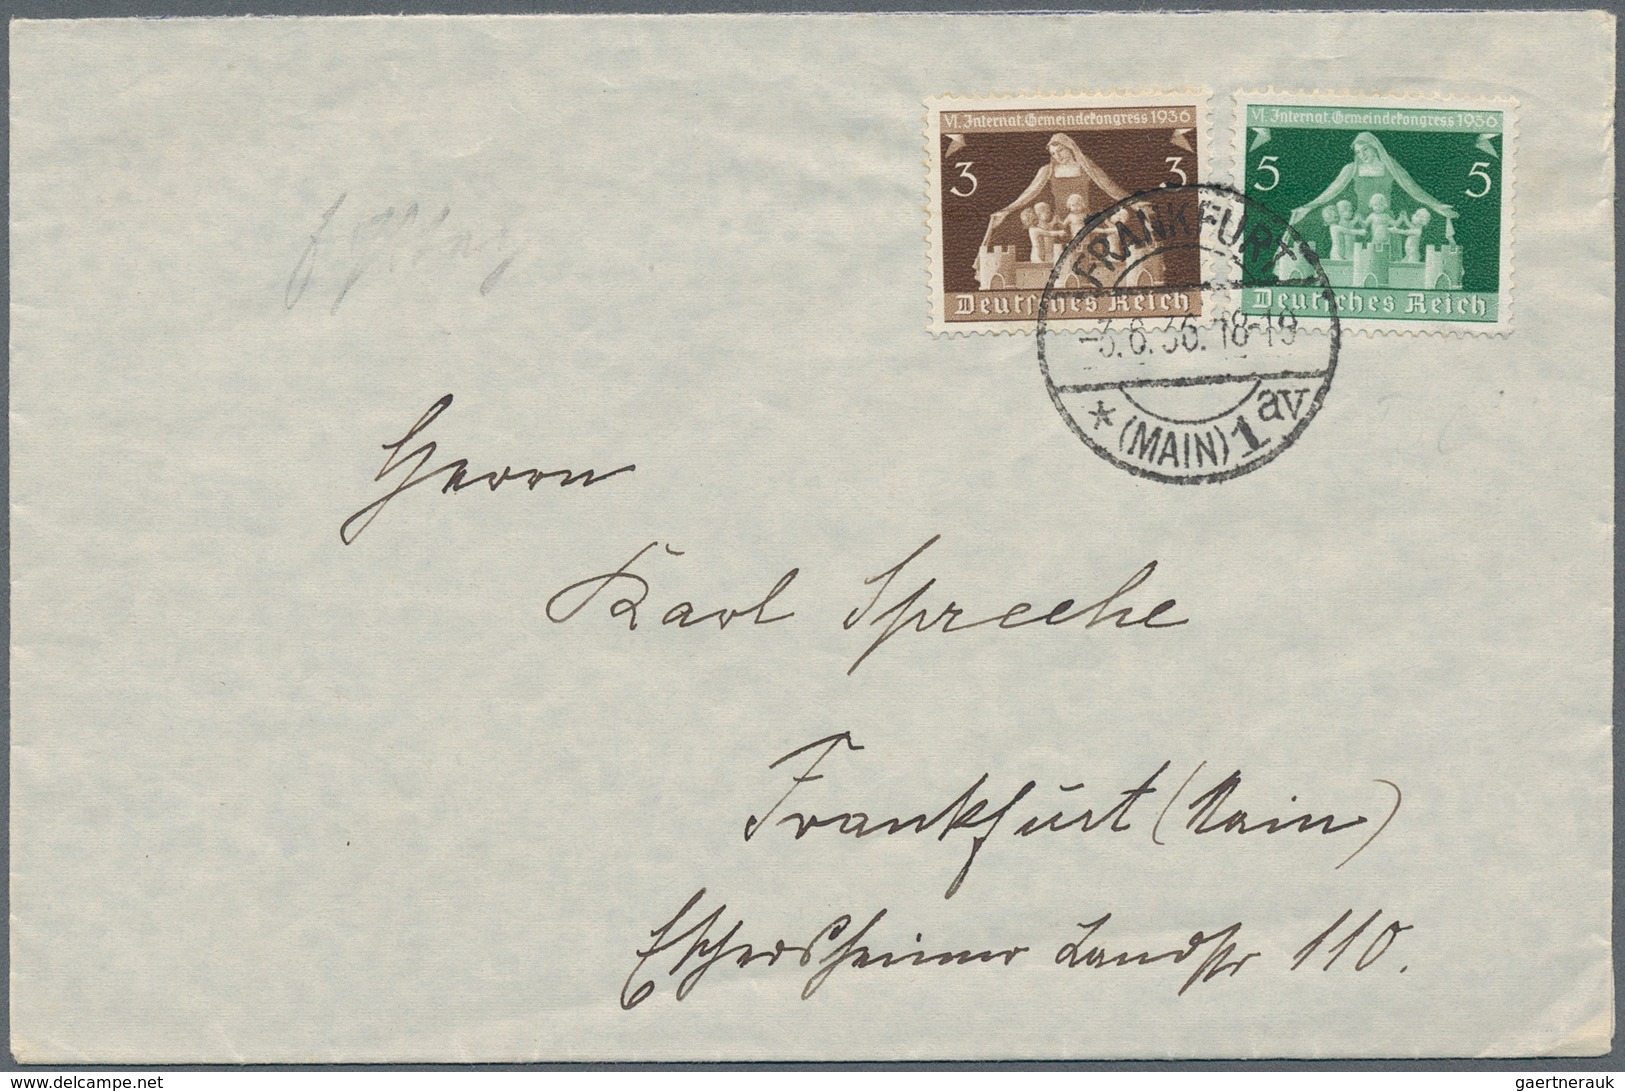 VI. Internat. Gemeindekongress 1936
3 3
Deutsches Reich
VI. Internat. Gemeindekongress 1936
5 5
Deutsches Reich
FRANKFURT
-3.6.36.18-19
* (MAIN) 1 av
Herrn
Karl Spreche
Frankfurt (Main)
Eschersheimer Landstr 110.
www.delcampe.net
gaertnerauk